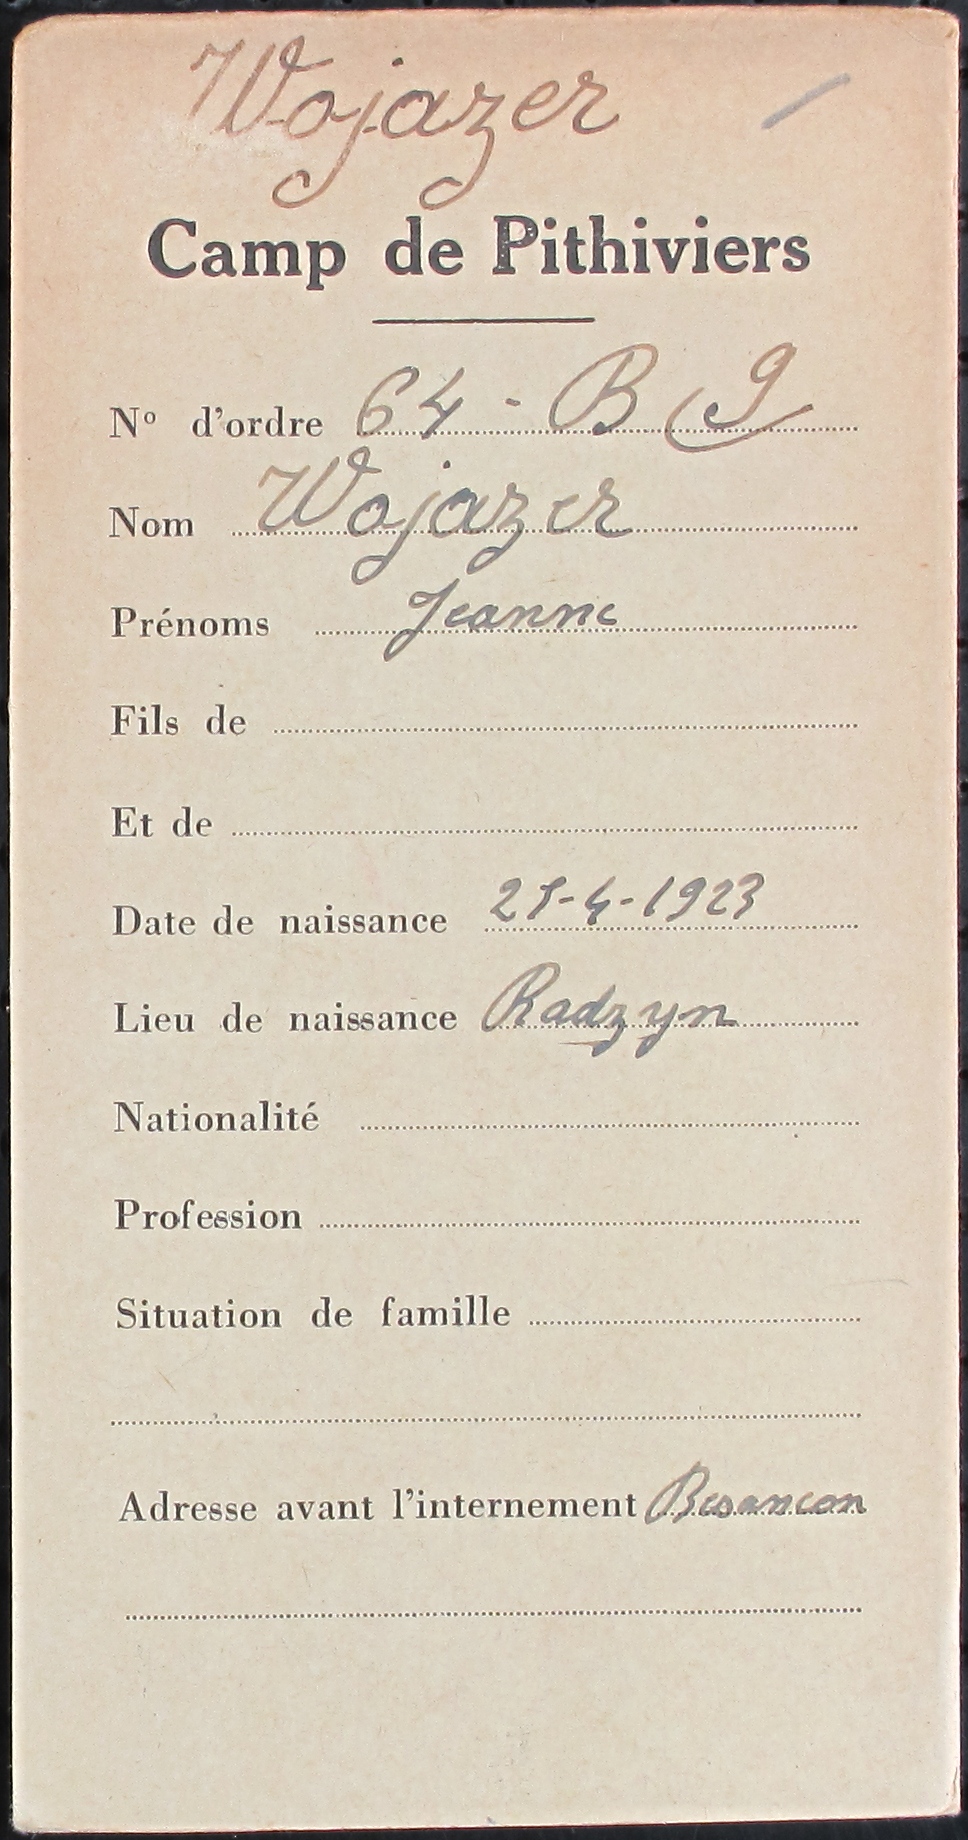 Wojazer
Camp de Pithiviers
No d'ordre 64 - B 9
Nom Wojazer
Prénoms Jeanne
Fils de
Et de
Date de naissance 25-4-1923
Lieu de naissance Radzyn
Nationalité
Profession
Situation de famille
Adresse avant l'internement Besancon